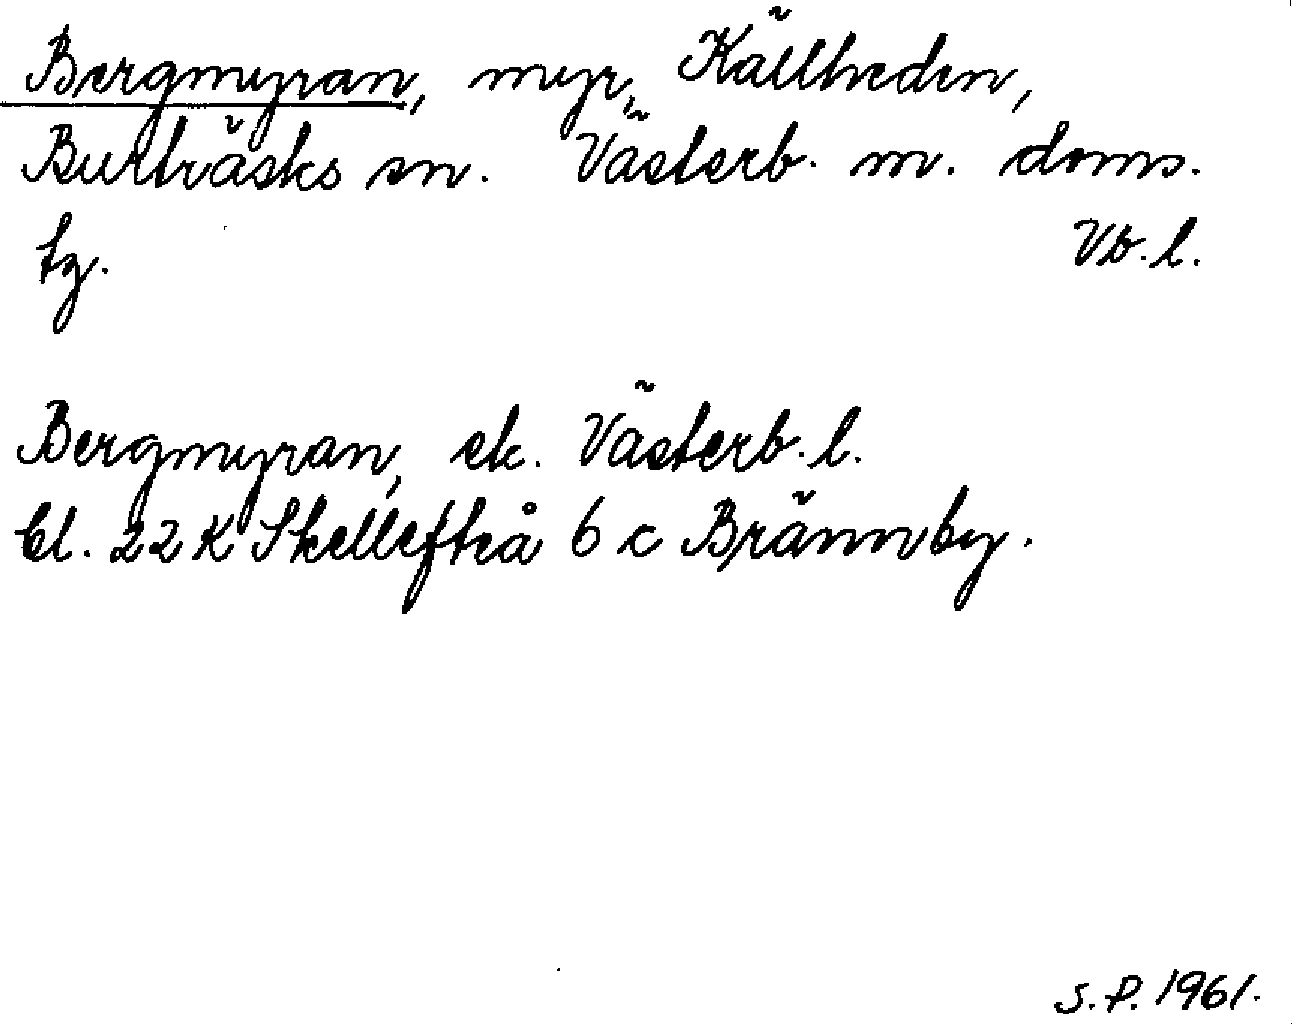 Bergmyran, myr, Källheden,
Burträsks sn. Västerb. m. doms.
tg. Vb. l.
Bergmyran, ek. Västerb. l.
bl. 22 K Skellefteå 6 c Brännby.
S. P. 1961.